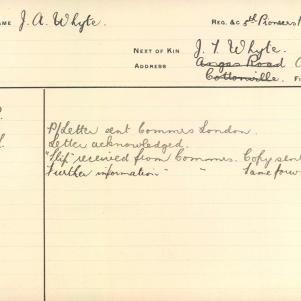 NAME J. A. Whyte.
REG. &c 5th Pioneers
NEXT OF KIN J. T. Whyte.
ADDRESS Angas Road
Cottonville.
P/Letter sent Commrs London.
Letter acknowledged.
"Slip" received from Commrs. Copy sent
Further information " " Same forw